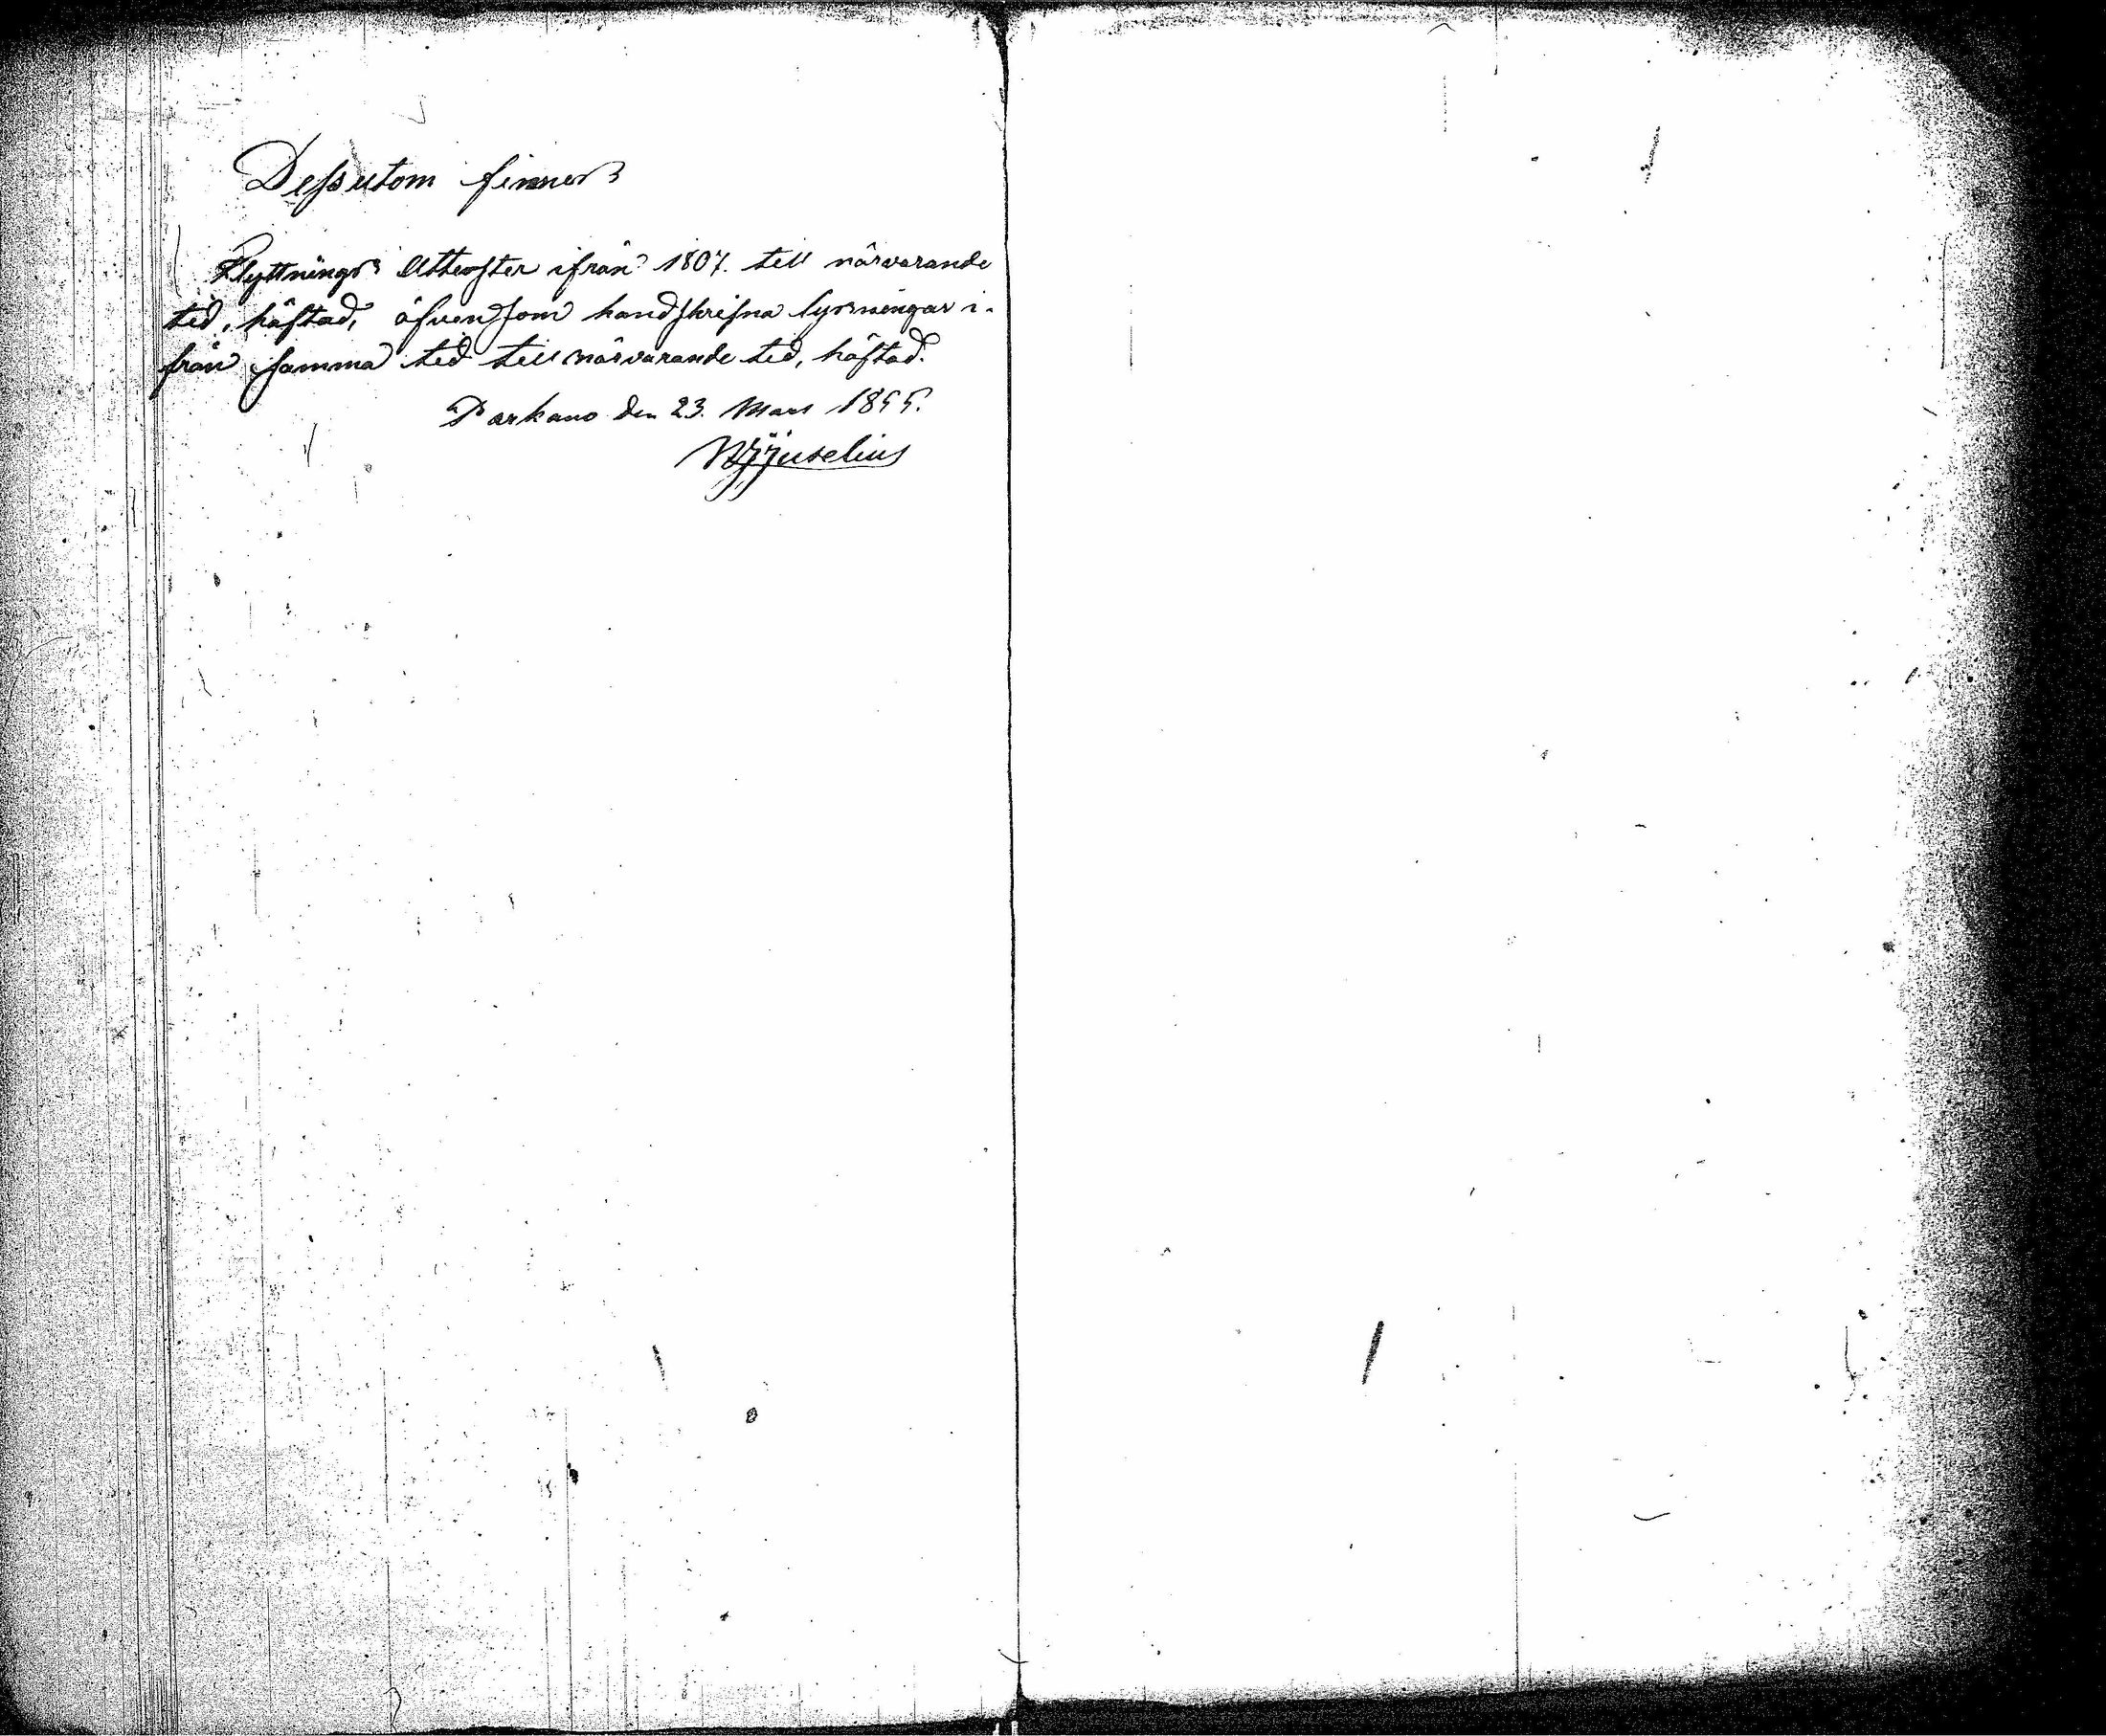 Dessutom finnes
Flyttnings Attester ifrån 1807. till närvarande
tid, häftad, äfvensom handskrifna lysningar i-
från samma tid till närvarande tid, häftad.
Parkano den 23. Mars 1855.
Juselius